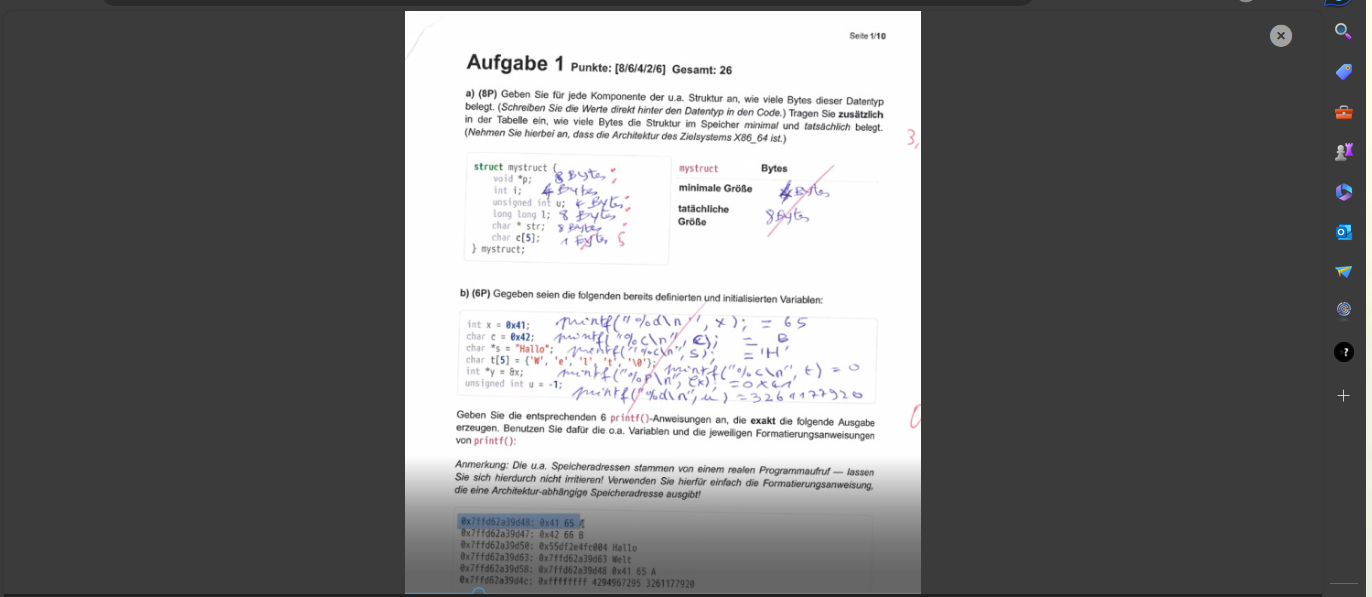 Seite 1/10
Aufgabe 1 Punkte: [8/6/4/2/6] Gesamt: 26
a) (8P) Geben Sie für jede Komponente der u.a. Struktur an, wie viele Bytes dieser Datentyp
belegt. (Schreiben Sie die Werte direkt hinter den Datentyp in den Code.) Tragen Sie zusätzlich
in der Tabelle ein, wie viele Bytes die Struktur im Speicher minimal und tatsächlich belegt.
(Nehmen Sie hierbei an, dass die Architektur des Zielsystems X86_64 ist.)
3,
struct mystruct {
void *p; 8 Bytes
int i; 4 Bytes
unsigned int u; 4 Bytes
long long l; 8 Bytes
char * str; 8 Bytes
char c[5]; 1 Bytes 5
} mystruct;
mystruct Bytes
minimale Größe 4 Bytes
tatächliche
Größe 8 Bytes
b) (6P) Gegeben seien die folgenden bereits definierten und initialisierten Variablen:
int x = 0x41; printf("%d\n", x); = 65
char c = 0x42; printf("%c\n", c); = B
char *s = "Hallo"; printf("%c\n", s); = 'H'
char t[5] = {'W', 'e', 'l', 't', '\0'}; printf("%c\n", t) = 0
int *y = &x; printf("%p\n", &x); = 0x41
unsigned int u = -1; printf("%d\n", u) = 3261177920
Geben Sie die entsprechenden 6 printf()-Anweisungen an, die exakt die folgende Ausgabe
erzeugen. Benutzen Sie dafür die o.a. Variablen und die jeweiligen Formatierungsanweisungen
von printf():
Anmerkung: Die u.a. Speicheradressen stammen von einem realen Programmaufruf — lassen
Sie sich hierdurch nicht irritieren! Verwenden Sie hierfür einfach die Formatierungsanweisung,
die eine Architektur-abhängige Speicheradresse ausgibt!
0x7ffd62a39d48: 0x41 65 A
0x7ffd62a39d47: 0x42 66 B
0x7ffd62a39d50: 0x55df2e4fc004 Hallo
0x7ffd62a39d63: 0x7ffd62a39d63 Welt
0x7ffd62a39d58: 0x7ffd62a39d48 0x41 65 A
0x7ffd62a39d4c: 0xffffffff 4294967295 3261177920